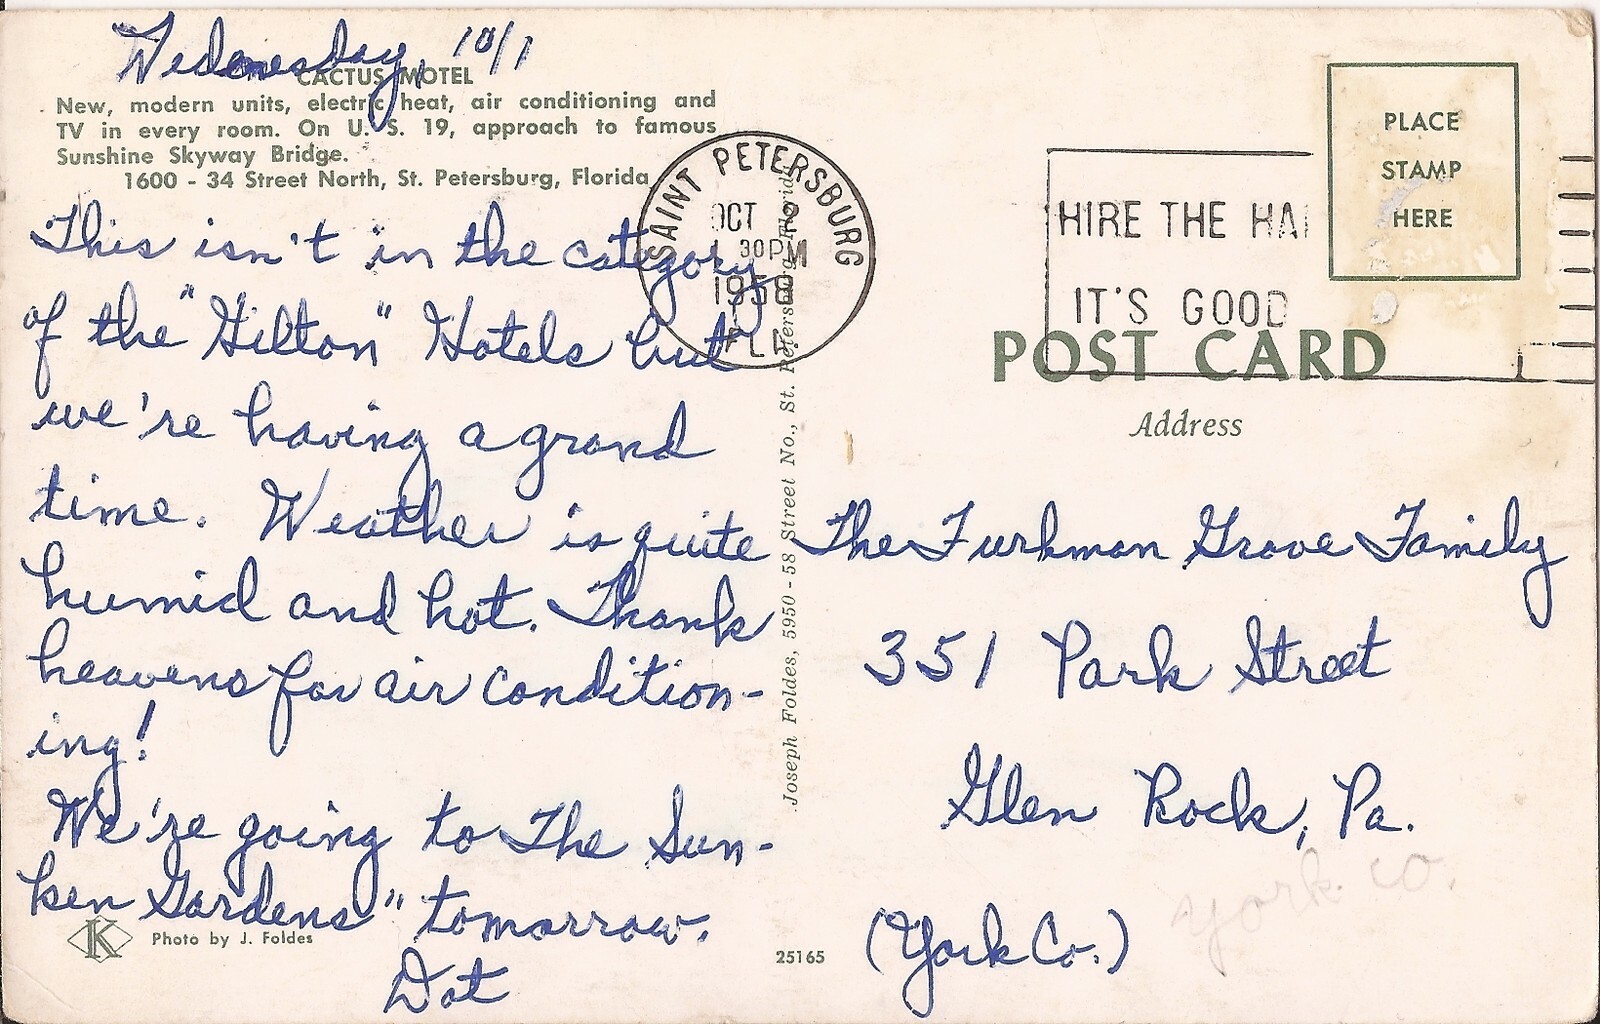 Wednesday, 10/1
CACTUS MOTEL
New, modern units, electric heat, air conditioning and
TV in every room. On U. S. 19, approach to famous
Sunshine Skyway Bridge.
1600 - 34 Street North, St. Petersburg, Florida
This isn't in the category
of the "Hilton" Hotels but
we're having a grand
time. Weather is quite
humid and hot. Thank
heavens for air condition-
ing!
We're going to The Sun-
ken Gardens" tomorrow.
Dot
K
Photo by J. Foldes
25165
Joseph Foldes, 5950 - 58 Street No., St. Petersburg, Florida
SAINT PETERSBURG
OCT 2
30 PM
1958
FLA
HIRE THE HA
IT'S GOOD
PLACE
STAMP
HERE
POST CARD
Address
The Furhman Grove Family
351 Park Street
Glen Rock, Pa.
York Co.
(York Co.)